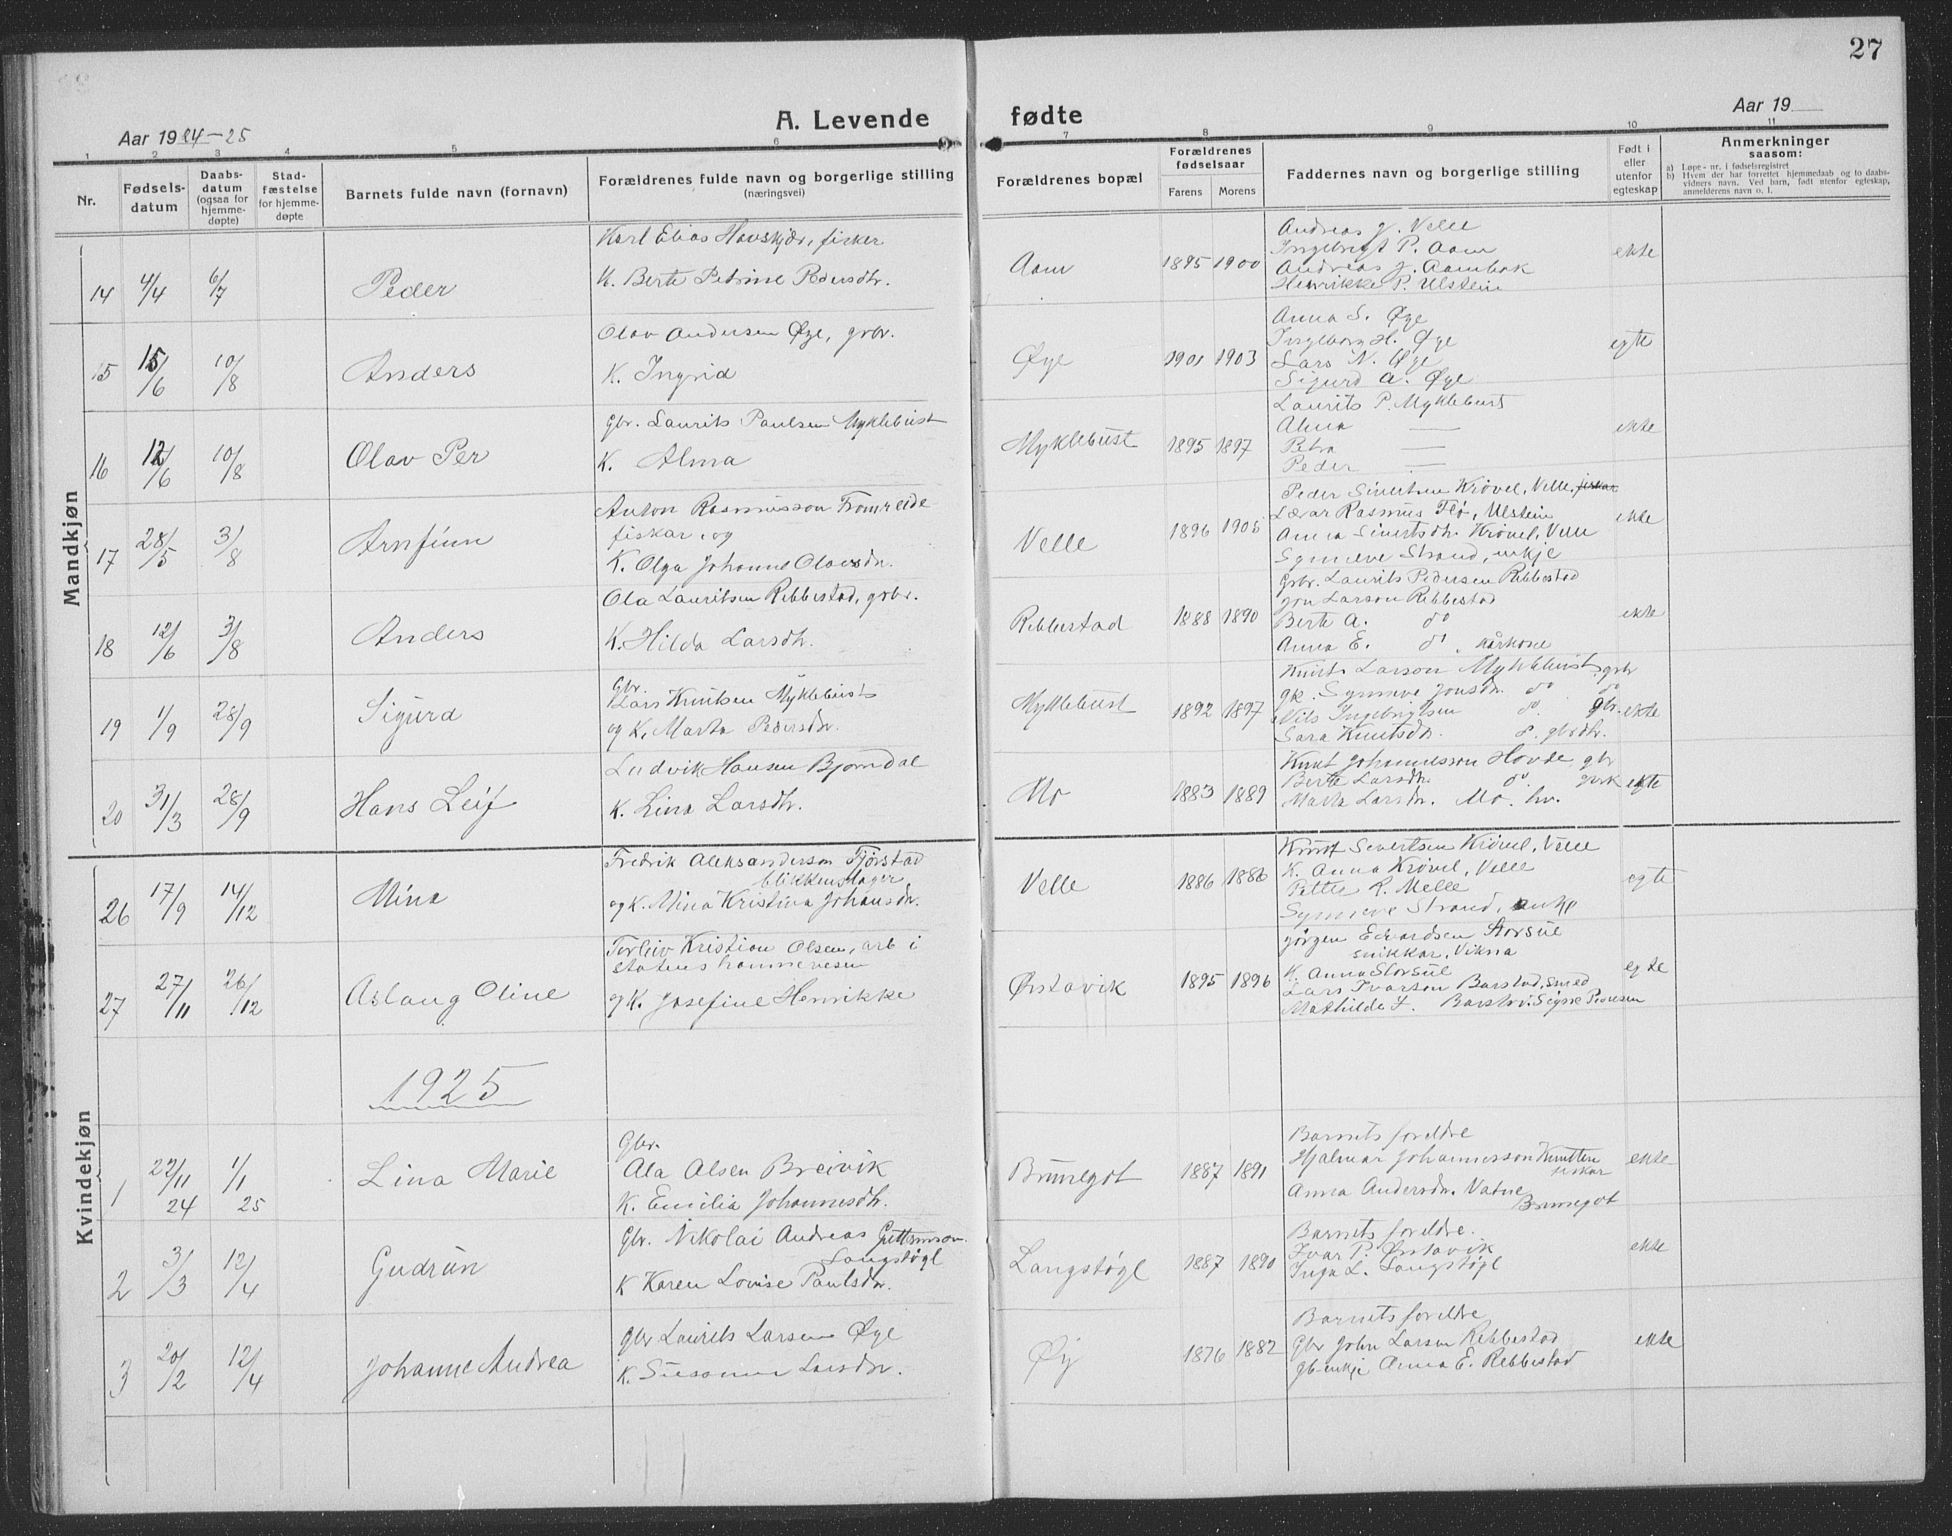 27
Aar 1924-25
A. Levende fødte
Aar 19
1 2 3 4 5 6 7 8 9 10 11
Nr.
Fødsels-datum
Daabs-datum (ogsaa for hjemme-døpte)
Stad-fæstelse for hjemme-døpte
Barnets fulde navn (fornavn)
Forældrenes fulde navn og borgerlige stilling (næringsvei)
Forældrenes bopæl
Forældrenes fødselsaar
Farens Morens
Faddernes navn og borgerlige stilling
Født i eller utenfor egteskap
Anmerkninger saasom:
a) Løpe-nr. i fødselsregistret
b) Hvem der har forrettet hjemmedaab og to daabs-vidners navn. Ved barn, født utenfor egteskap, anmelderens navn o. l.
Mandkjøn
14 4/4 6/7 Peder
Karl Elias Havskjær, fisker
K. Berte Petrine Pedersdtr.
Aam 1895 1900
Andreas J. Velle
Ingebrigt P. Aam
Andreas J. Aambak
Henrikke P. Ulstein
ekte
15 15/6 10/8 Anders
Olav Andersen Øye, grbr.
K. Ingrid
Øye 1901 1903
Anna S. Øye
Ingeborg H. Øye
Lars N. Øye
Sigurd A. Øye
egte
16 12/6 10/8 Olav Per
Gbr. Laurits Paulsen Myklebust
K. Alma
Myklebust 1895 1897
Laurits P. Myklebust
Alma —
Petra —
Peder —
ekte
17 28/5 3/8 Arnfinn
Anton Rasmusson Fromreide
fiskar, og
K. Olga Johanne Olavsdtr.
Velle 1896 1905
Peder Sivertsen Krøvel, Velle, fiskar
Lærar Rasmus Flø, Ulstein
Anna Sivertsdtr. Krøvel, Velle
Synneve Strand, enkje
ekte
18 12/6 3/8 Anders
Ola Lauritsen Ribbestad, grbr.
K. Hilda Larsdtr.
Ribbestad 1888 1890
Grbr. Laurits Pedersen Ribbestad
Jon Larson Ribbestad
Berte A. do
Anna E. do, kårkone
ekte
19 1/9 28/9 Sigurd
Gbr.
Lars Knutsen Myklebust
og K. Marta Pedersdtr.
Myklebust 1892 1897
Knut Larson Myklebust, grbr
gk. Synneve Jonsdtr. do do
Nils Ingebrigtsen do. gbr.
Sara Knutsdtr. do. gbrdtr.
ekte
20 31/3 28/9 Hans Leif
Ludvik Hansen Bjørndal
K. Lina Larsdtr.
Mo 1883 1889
Knut Johannesson Hovde gbr
Berte Larsdtr. do. gbrk
Marta Larsdtr. Mo. hv.
egte
Kvindekjøn
26 17/9 14/12 Mina
Fredrik Aleksanderson Fjørstad
blikkenslager
og K. Mina Kristina Johansdtr.
Velle 1886 1886
Knut Severtsen Krøvel, Velle
K. Anna Krøvel, Velle
Petter R. Melle
Synneve Strand, enkje
egte
27 27/11 26/12 Aslaug Oline
Torleiv Kristian Olsen, arb i
statens havnevesen
og K. Josefine Henrikke
Ørstavik 1895 1896
Jørgen Edvardsen Storsul
snikkar, Vikna
K. Anna Storsul
Lars Ivarson Barstad, Smed
Mathilde I. Barstad. Signe Pedersen
egte
1925
1 22/11 24 1/1 25 Lina Marie
Gbr.
Ola Olsen Breivik
K. Emilia Johannesdtr.
Brunegot 1887 1891
Barnets foreldre
Hjalmar Johannesson Knutten
fiskar
Anna Andersdtr. Vatne
Brunegot
ekte
2 3/3 12/4 Gudrun
Gbr. Nikolai Andreas Guttormson
Langstøyl
K Karen Lovise Paulsdtr.
Langstøyl 1887 1890
Barnets foreldre.
Ivar P. Ørstavik
Inga L. Langstøyl
ekte
3 20/2 12/4 Johanne Andrea
Gbr Laurits Larsen Øye
K. Susanne Larsdtr.
Øy 1876 1882
Barnets foreldre
Gbr John Larsen Ribbestad
gb-enkje Anna E. Ribbestad
ekte